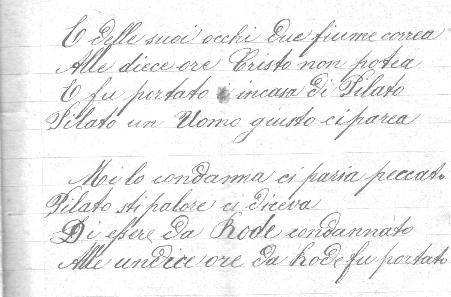 E delle suoi occhi due fiume correa
Alle diece ore Cristo non potea
E fu portato incasa di Pilato
Pilato un Uomo giusto ci parea
Mi lo condanna ci paria peccato
Pilato sti palore ci diceva
Di essere da Rode condannato
Alle undice ore da Rode fu portato